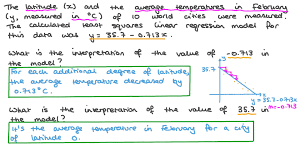 The latitude (x) and the average temperatures in February
(y, measured in °C) of 10 world cities were measured.
The calculated least squares linear regression model for
this data was y = 35.7 - 0.713x.
What is the interpretation of the value of -0.713 in
the model?
For each additional degree of latitude,
the average temperature decreased by
0.713°C.
What is the interpretation of the value of 35.7 in
the model?
It's the average temperature in February for a city
of latitude 0.
y
35.7
x
y = 35.7-0.713x
m=-0.713